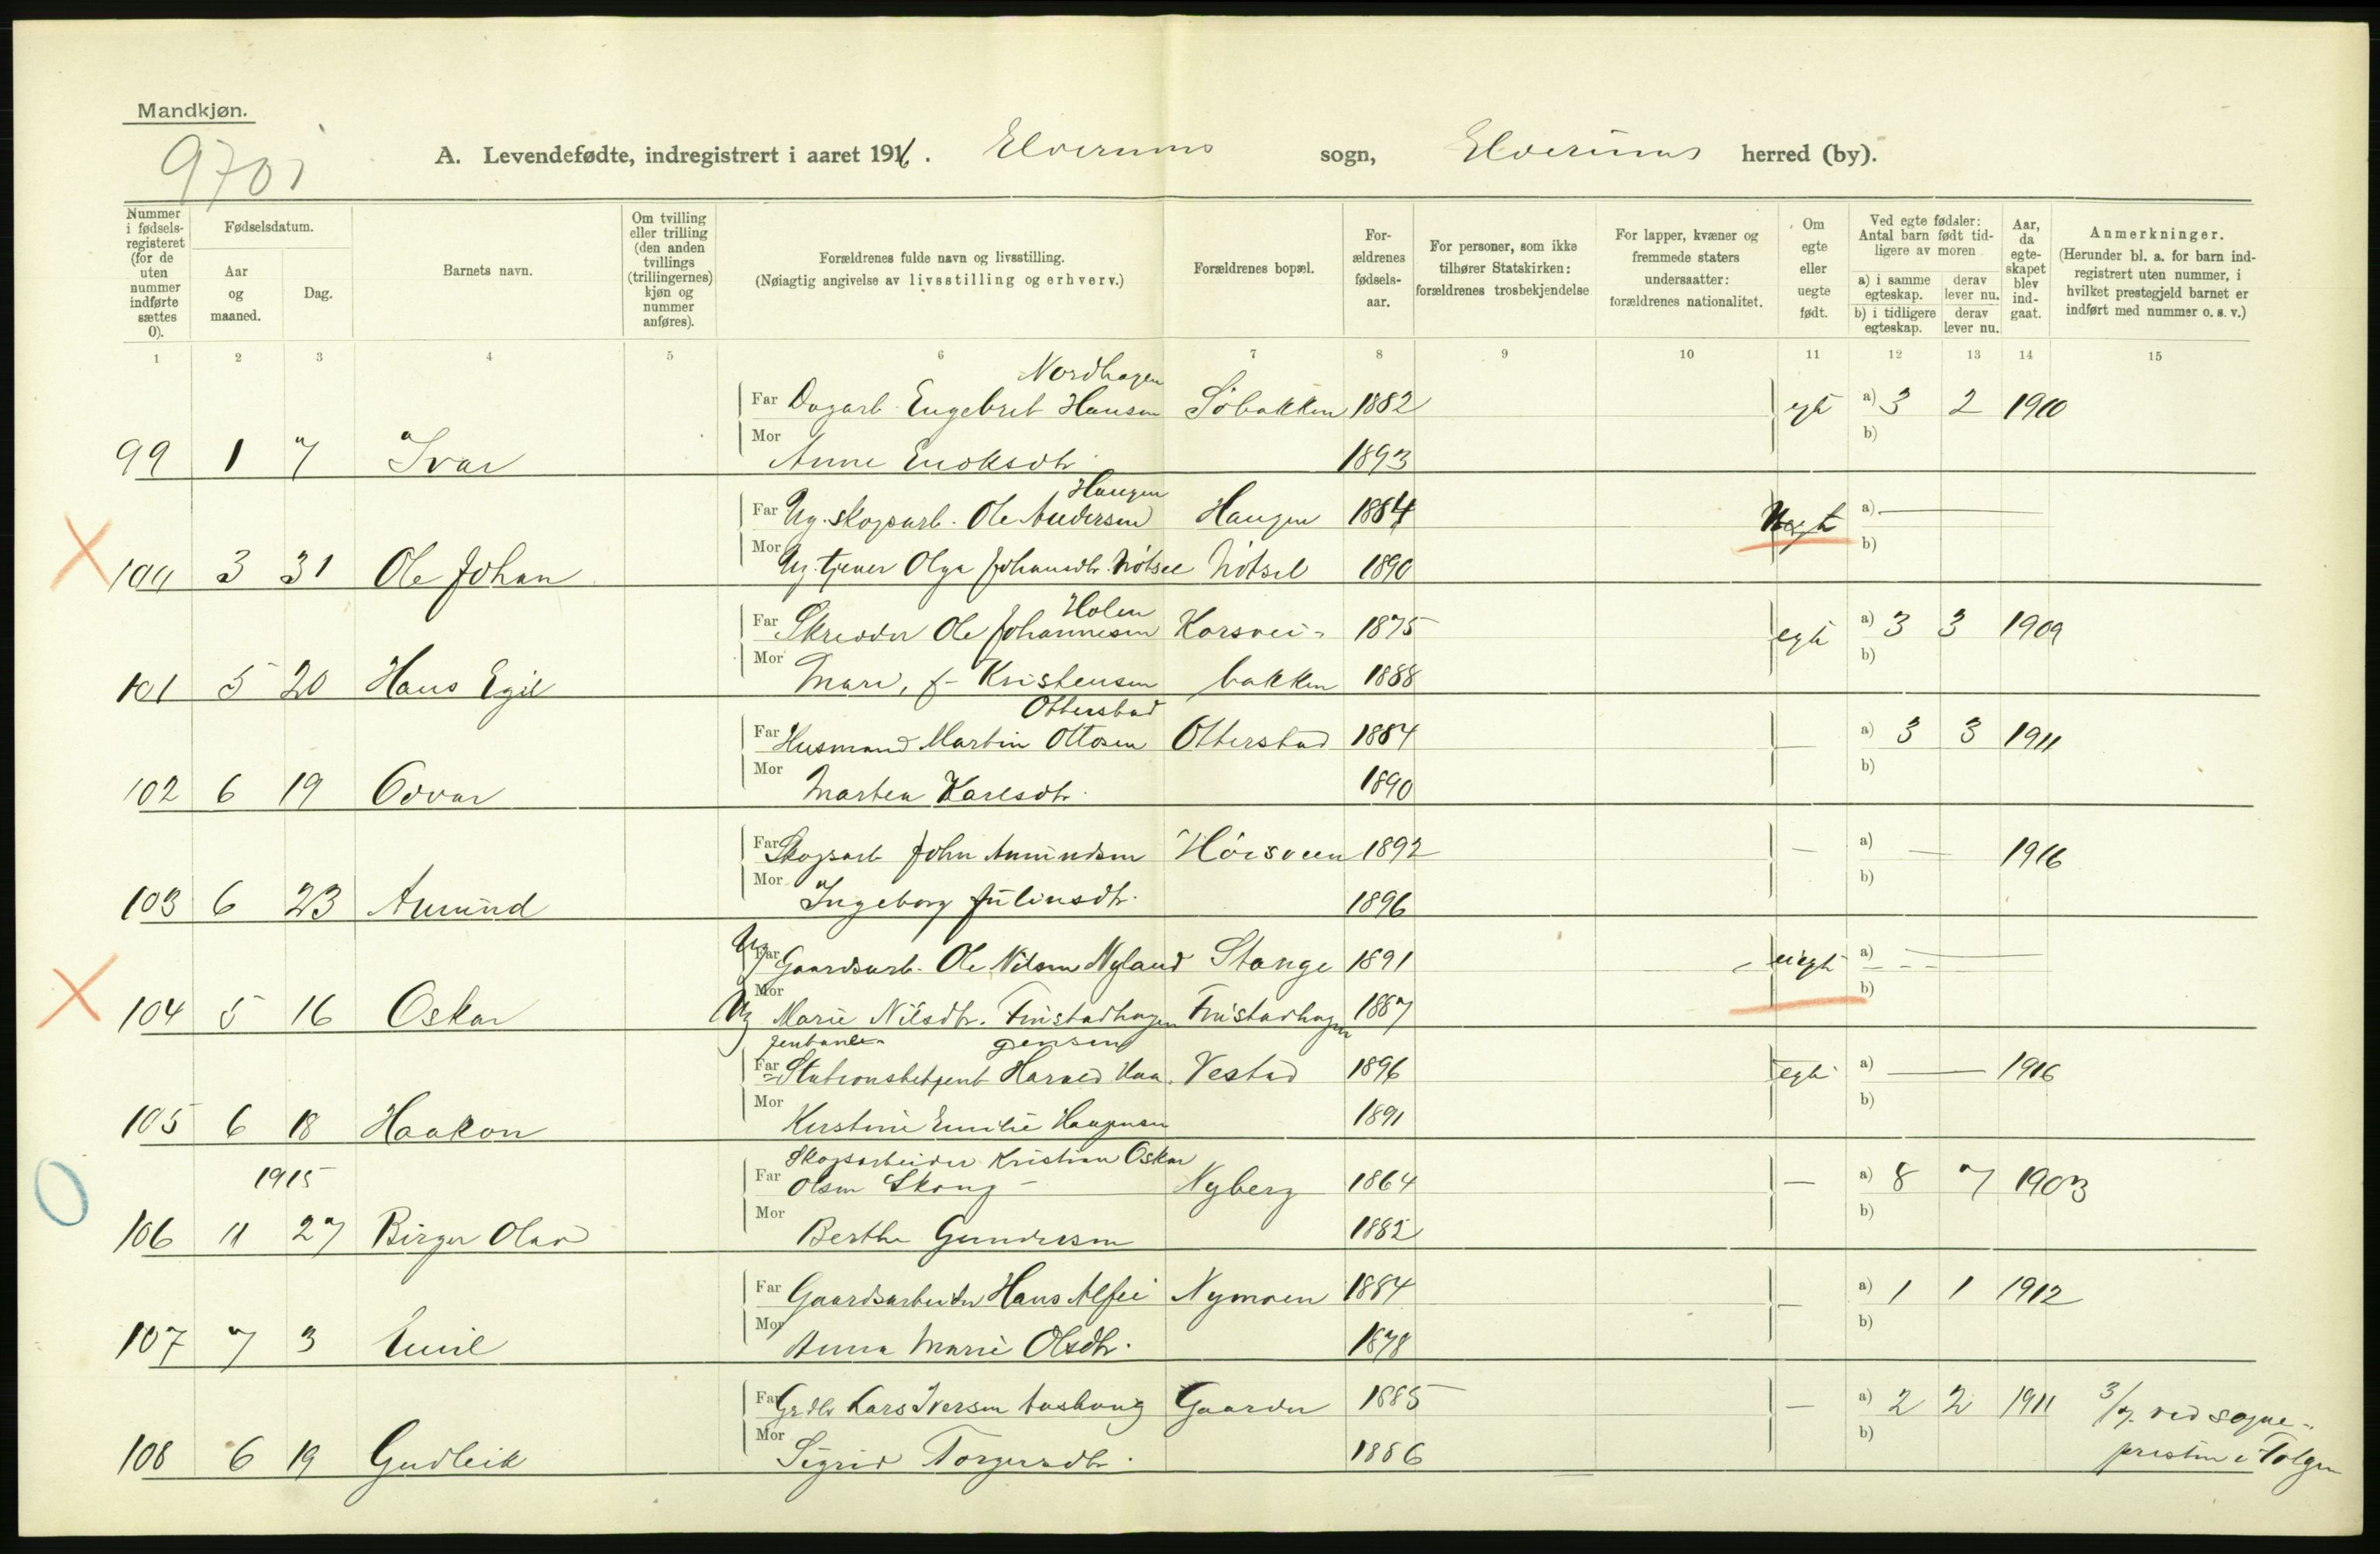 Mandkjøn.
9701
A. Levendefødte, indregistrert i aaret 1916. Elverums sogn, Elverums herred (by).
Nummer i fødsels-registeret (for de uten nummer indførte sættes 0).
Fødselsdatum.
Aar og maaned.
Dag.
Barnets navn.
Om tvilling eller trilling (den anden tvillings (trillingernes) kjøn og nummer anføres).
Forældrenes fulde navn og livsstilling.
(Nøiagtig angivelse av livsstilling og erhverv.)
Forældrenes bopæl.
For-ældrenes fødsels-aar.
For personer, som ikke tilhører Statskirken: forældrenes trosbekjendelse
For lapper, kvæner og fremmede staters undersaatter: forældrenes nationalitet.
Om egte eller uegte født.
Ved egte fødsler: Antal barn født tid-ligere av moren
a) i samme egteskap. derav lever nu.
b) i tidligere egteskap. derav lever nu.
Aar, da egte-skapet blev ind-gaat.
Anmerkninger.
(Herunder bl. a. for barn ind-registrert uten nummer, i hvilket prestegjeld barnet er indført med nummer o. s. v.)
1 2 3 4 5 6 7 8 9 10 11 12 13 14 15
Nordhagen
Far Dagarb. Engebret Hansen Søbakken 1882 egte a) 3 2 1910
Mor b)
99 1 7 Ivar Anne Enoksdtr. 1893
Haugen
Far Ug. skogsarb. Ole Andersen Haugen 1884 Uegte a) —
Mor b)
100 3 31 Ole Johan Ug. tjener Olga Johansdtr. Nötsel Nötsel 1890
Holen
Far Skredder Ole Johannesen Korsvei- 1875 egte a) 3 3 1909
Mor b)
101 5 20 Hans Egil Mari, f- Kristensen bakken 1888
Otterstad
Far Husmand Martin Ottosen Otterstad 1884 — a) 3 3 1911
Mor b)
102 6 19 Odvar Martea Karlsdtr. 1890
Far Skogsarb John Amundsen Höisveen 1892 — a) — 1916
Mor b)
103 6 23 Amund Ingeborg Julinsdtr. 1896
Far Ug Gaardsarb. Ole Nilsen Nyland Stange 1891 uegte a) —
Mor b)
104 5 16 Oskar Ug Marie Nilsdtr. Finstadhagen Finstadhagen 1887
Jenbane- gensen
Far Stationsbetjent Harald Haa- Vestad 1896 egte a) — 1916
Mor b)
105 6 18 Haakon Kirstine Emilie Haagensen 1891
Skogsarbeider Kristian Oskar
1915 Far Olsen Skong — Nyberg 1864 — a) 8 7 1903
Mor b)
106 11 27 Birger Olav Berthe Gundersen 1882
Far Gaardsarbeider Hans Alfei Nymoen 1884 — a) 1 1 1912
Mor b)
107 7 3 Emil Anna Marie Olsdtr. 1878
Far Grdbr Lars Iversen Aashaug Gaarder 1885 — a) 2 2 1911 3/7. ved sogne-
Mor b) presten i Tolgen
108 6 19 Gudleik Sigrid Torgersdtr. 1886